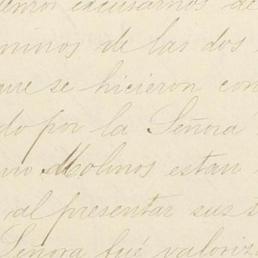 excusarnos de
minos de las dos
que se hicieron con
do por la Señora
Molinos estan
al presentar sus
Señora fué valoriz